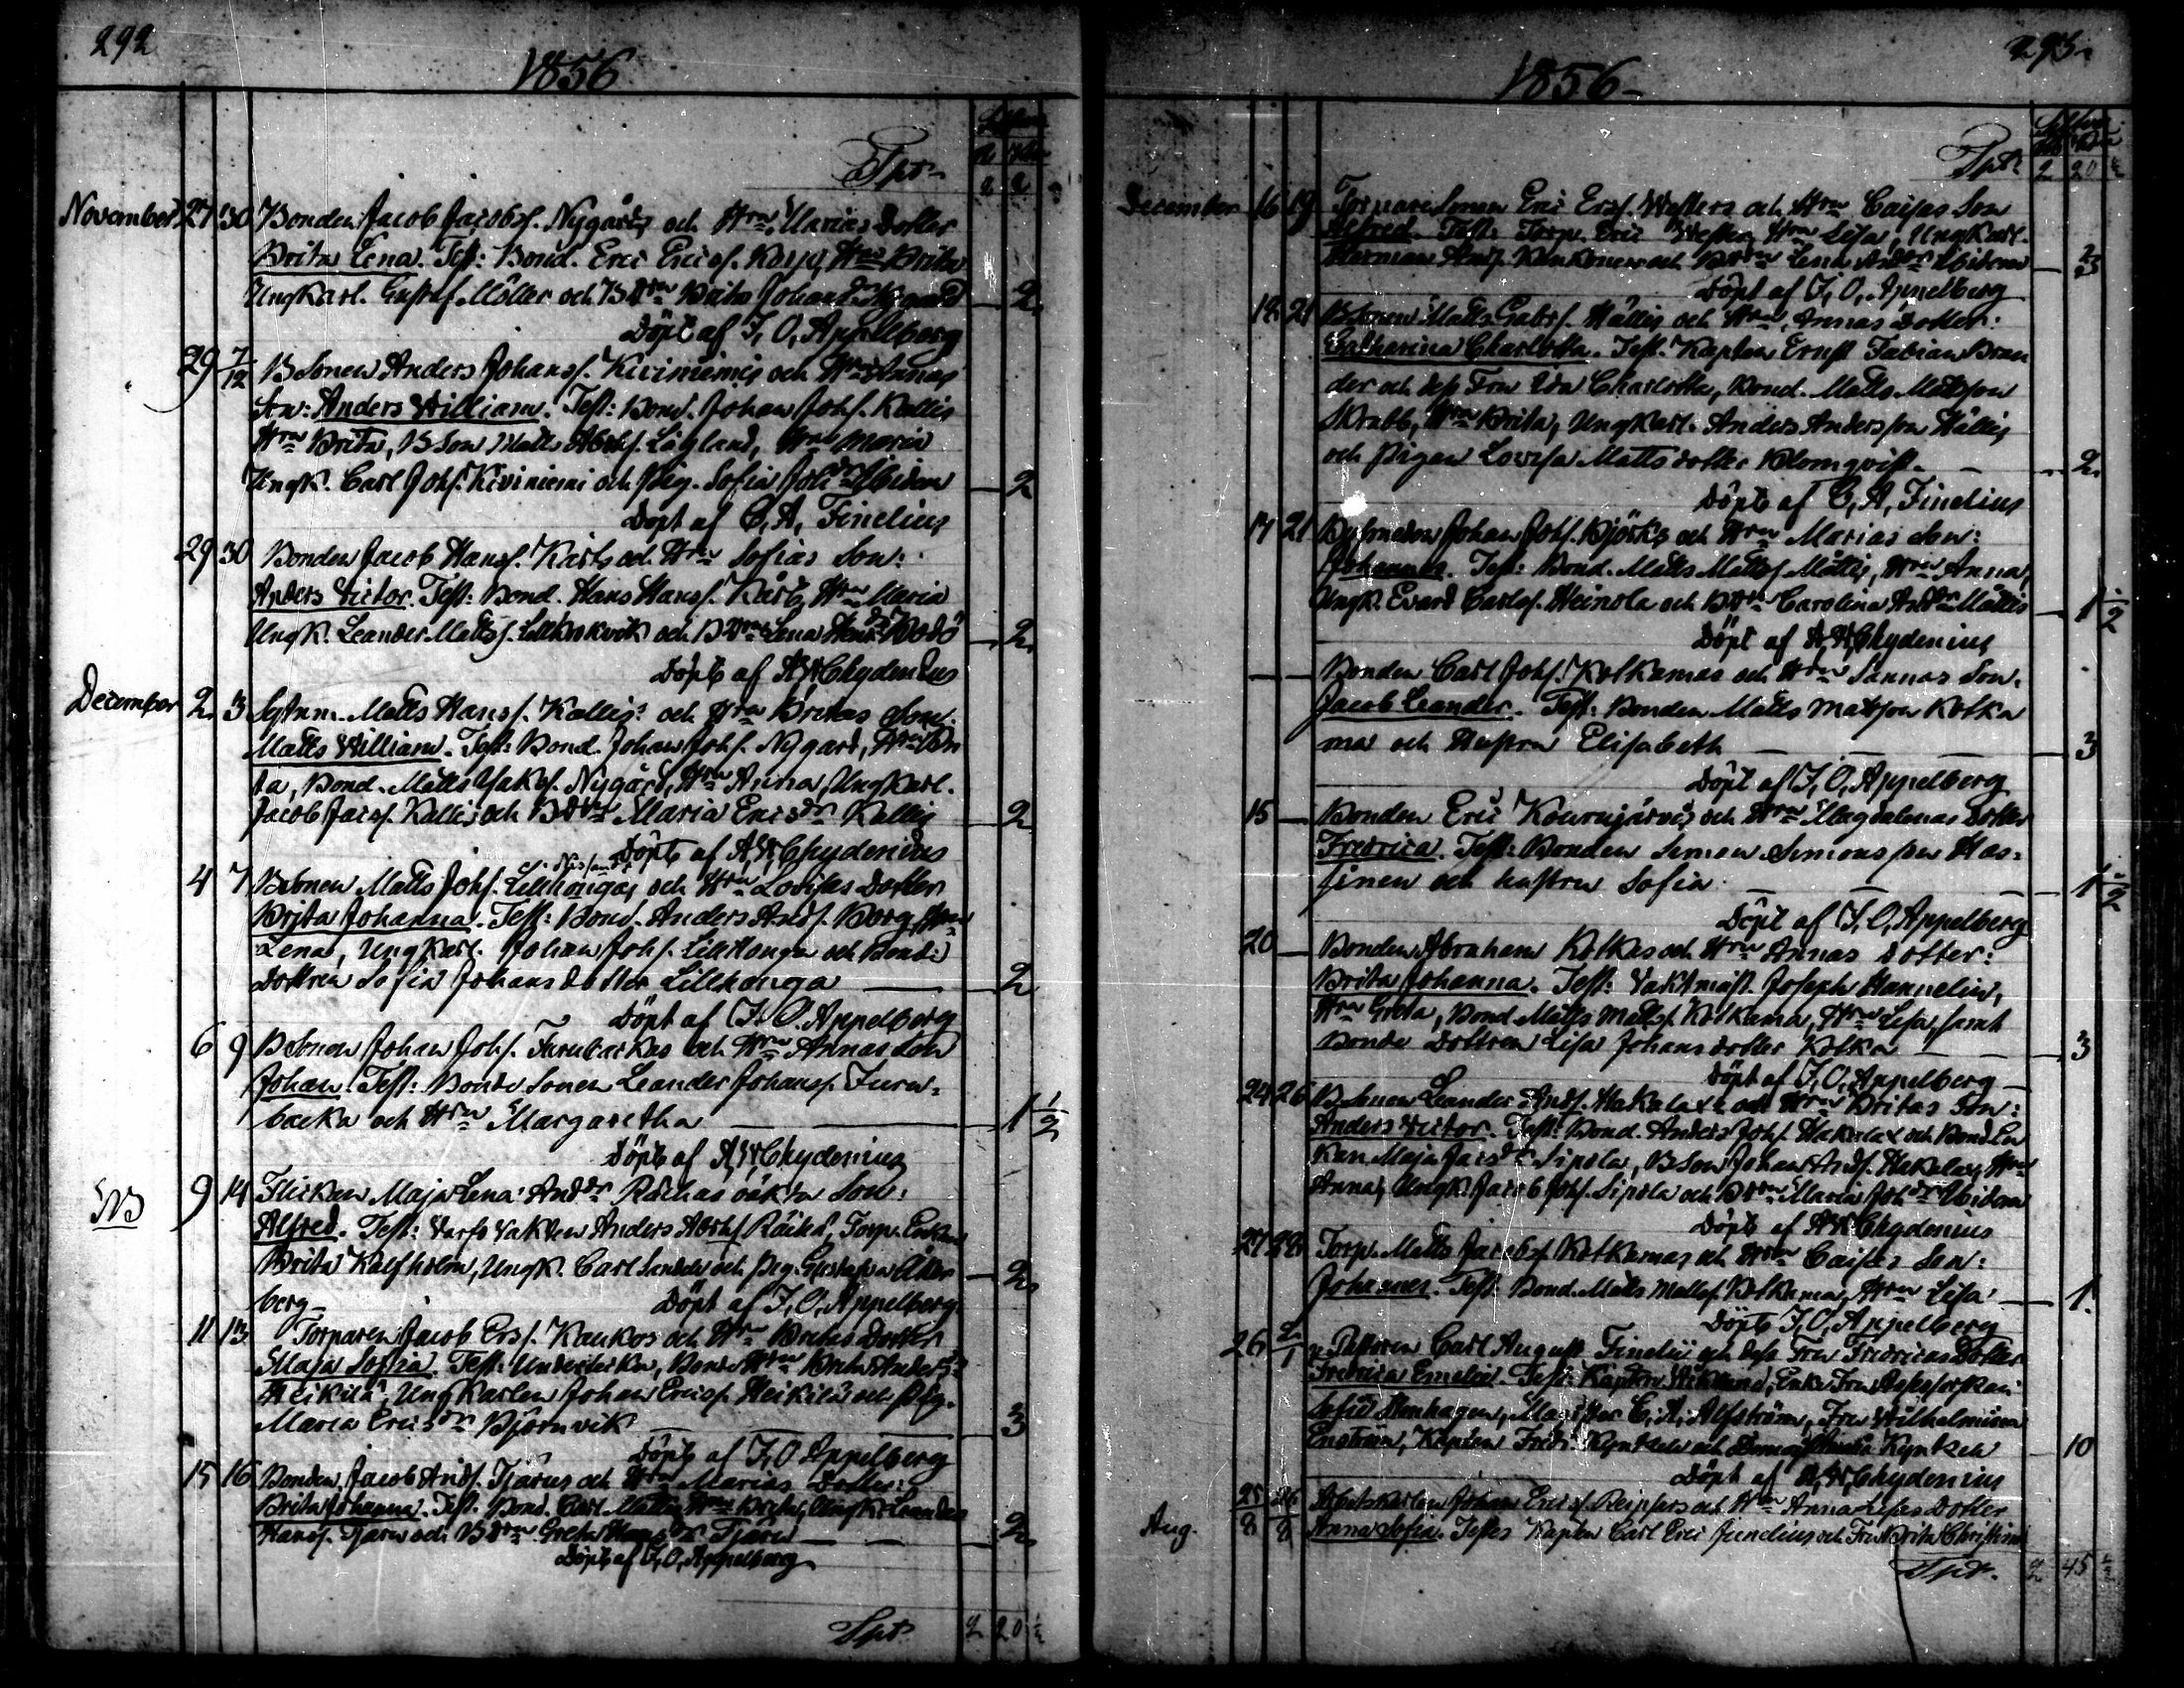 292
1856
Silfver
Tpr
2 2
November 27 30 Bonden Jacob Jacobss. Nygårds och Hru Marias Dotter
Brita Lena. Test: Bond. Eric Ericss. Hru Brita
Ungkarl. Gustaf Möller och BDtrn Brita Johansdr Nygård 2
Döpt af J, O, Appelberg
29 7/12 BSonen Anders Johanss. Kiviniemis och Hru Annas
Son: Anders William. Test: Bond. Johan Johs. Kallis,
Hru Brita, BSon Matts Abrhs. Lågland, Hru Maria
Ungk. Carl Johs. Kiviniemi och Pig. Sofia Johdr 2
Döpt af C, A, Finelius
29 30 Bonden Jacob Hanss. Kårts och Hru Sofias Son:
Anders Victor. Test: Bond. Hans Hanss. Kårts, Hru Maria
Ungk. Leander Mattss. och BDtrn Lena Bodö 2
Döpt af AWChydenius
December 2 3 Matts Hanss. Kallis och Hru Britas Son:
Matts William. Test: Bond. Johan Johs. Nygård, Hru Bri
ta, Bond. Matts Jakobs. Nygård, Hru Anna, Ungkarl.
Jacob Jacss. Kallis och BDtrn Maria Ericsdr Kallis 2
Döpt af AWChydenius
4 7 BSonen Matts Johs. Lillhongas och Hru Lovisas Dotter
Brita Johanna. Test: Bond. Anders Ands. Borg, Hru
Lena, Ungkarl. Johan Johs. Lillhonga och Bond:
Dottren Sofia Johansdotter Lillhonga 2
Döpt af J. O. Appelberg
6 9 BSonen Johan Johs. Furubackas och Hru Annas Son
Johan. Test: Bonde Sonen Leander Johanss. Furu-
backa och Hru Margaretha 1 1/2
Döpt af AWChydenius
NB 9 14 Flickan Maja Lena Anddr Räihas oäkta Son:
Alfred. Test: Varfs Vakten Anders Abrhs. Räihä, Torp. Enkan
Brita Kalfholm, Ungk. Carl Sandin och Pig. Gustafva Åker 2
berg Döpt af J, O, Appelberg
11 13 Torparen Jacob Ers. Kaukos och Hru Britas Dotter
Maja Sofia. Test: Bonde Hru Brita Andersdr
Heikilä, Ungkarlen Johan Ericss. Heikilä och Pig.
Maria Ericsdr Björnvik 3
Döpt af J, O Appelberg
15 16 Bonden Jacob Ands. Tjärus och Hru Marias Dotter:
Brita Johanna. Test: Bond. Carl Hru Brita, Ungk. Leander
Hanss. Tjäru och BDtrn Greta Hansdr Tjäru 2
Döpt af J, O, Appelberg
Tpr. 2 20 1/2
293
1856
Silfver
Tpr 2 20 1/2
December 16 19 Torparesonen Eric Erss. Westers och Hru Caisas Son
Alfred. Test: Torp. Eric Hru Lisa, Ungkarl.
Herman Ands. Kaukonen och BDtrn Lena
Döpt af J, O, Appelberg
18 21 BSonen Matts Gabrs. Hällis och Hru Annas Dotter:
Catharina Charlotta. Test. Kapten Ernst Fabian Bran
der och dess Fru Ida Charlotta, Bond. Matts Mattsson
Krabb, Hru Brita, Ungkarl. Anders Andersson Hällis
och Pigan Lovisa Mattsdotter Blomqvist 2
Döpt af C, A, Finelius
17 21 Johan Johs. Björks och Hru Marias Son:
Johannes. Test: Bond. Matts Mattss. Mattis, Hru Anna,
Ungk. Evard Carlss. Heinola och BDtrn Carolina Anddr Mattis 1 1/2
Döpt af AWChydenius
— — Bonden Carl Johs. Kotkamas och Hru Sannas Son.
Jacob Leander. Test: Bonden Matts Matsson Kotka
ma och Hustru Elisabeth 3
Döpt af J, O, Appelberg
15 — Bonden Eric Kourujärvis och Hru Magdalenas Dotter
Fredrica. Test: Bonden Simon Simonsson Has-
sinen och hustru Sofia 1 1/2
Döpt af J, O, Appelberg
20 — Bonden Abraham Kotkas och Hru Annas Dotter:
Brita Johanna. Test: Vaktmäst. Joseph Hannelin,
Hru Greta, Bond Matts Mattss. Kotkama, Hru Lisa, samt
Bonde Dottren Lisa Johansdotter Kotka 3
Döpt af J, O, Appelberg
24 26 BSonen Leander Ands. Hakalax och Hru Britas Son:
Anders Victor. Test: Bond. Anders Johs. Hakalax och Bond En
kan Maja Jacsdr Sipola, BSon Johan Ands. Hakalax, Hru
Anna, Ungk. Jacob Johs. Sipola och BDtrn Maria Johdr
Döpt af AWChydenius
27 28 Torp. Matts Jacobss. Kotkamas och Hru Caisas Son:
Johannes. Test: Bond. Matts Mattss. Kotkama, Hru Lisa 1
Döpt J, O, Appelberg
26 2/1 Pastoren Carl August Finelii och dess Fru Fredricas Dotter
Fredrica Emelie. Test: Kapten Wiklund, Enke Fru Assessorskan
Sofie Stenhagen, Magister C, A, Alfström, Fru Wilhelmina
Enström, Kapten Fredr. Kyntzell och Kyntzell 10
Döpt af AWChydenius
Aug. 25/8 26/8 Arbetskarlen Johan Ericss. Reipsars och Hru Anna Lisas Dotter
Anna Sofia. Testes Kapten Carl Eric Junelius och Fru Brita Christina
Tpr. 2 45 1/2